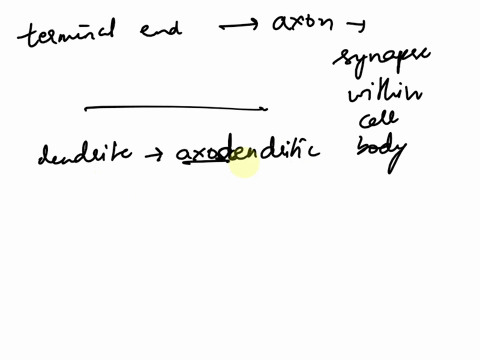 terminal end → axon →
synapse
within
cell
body
dendrite → axodendritic